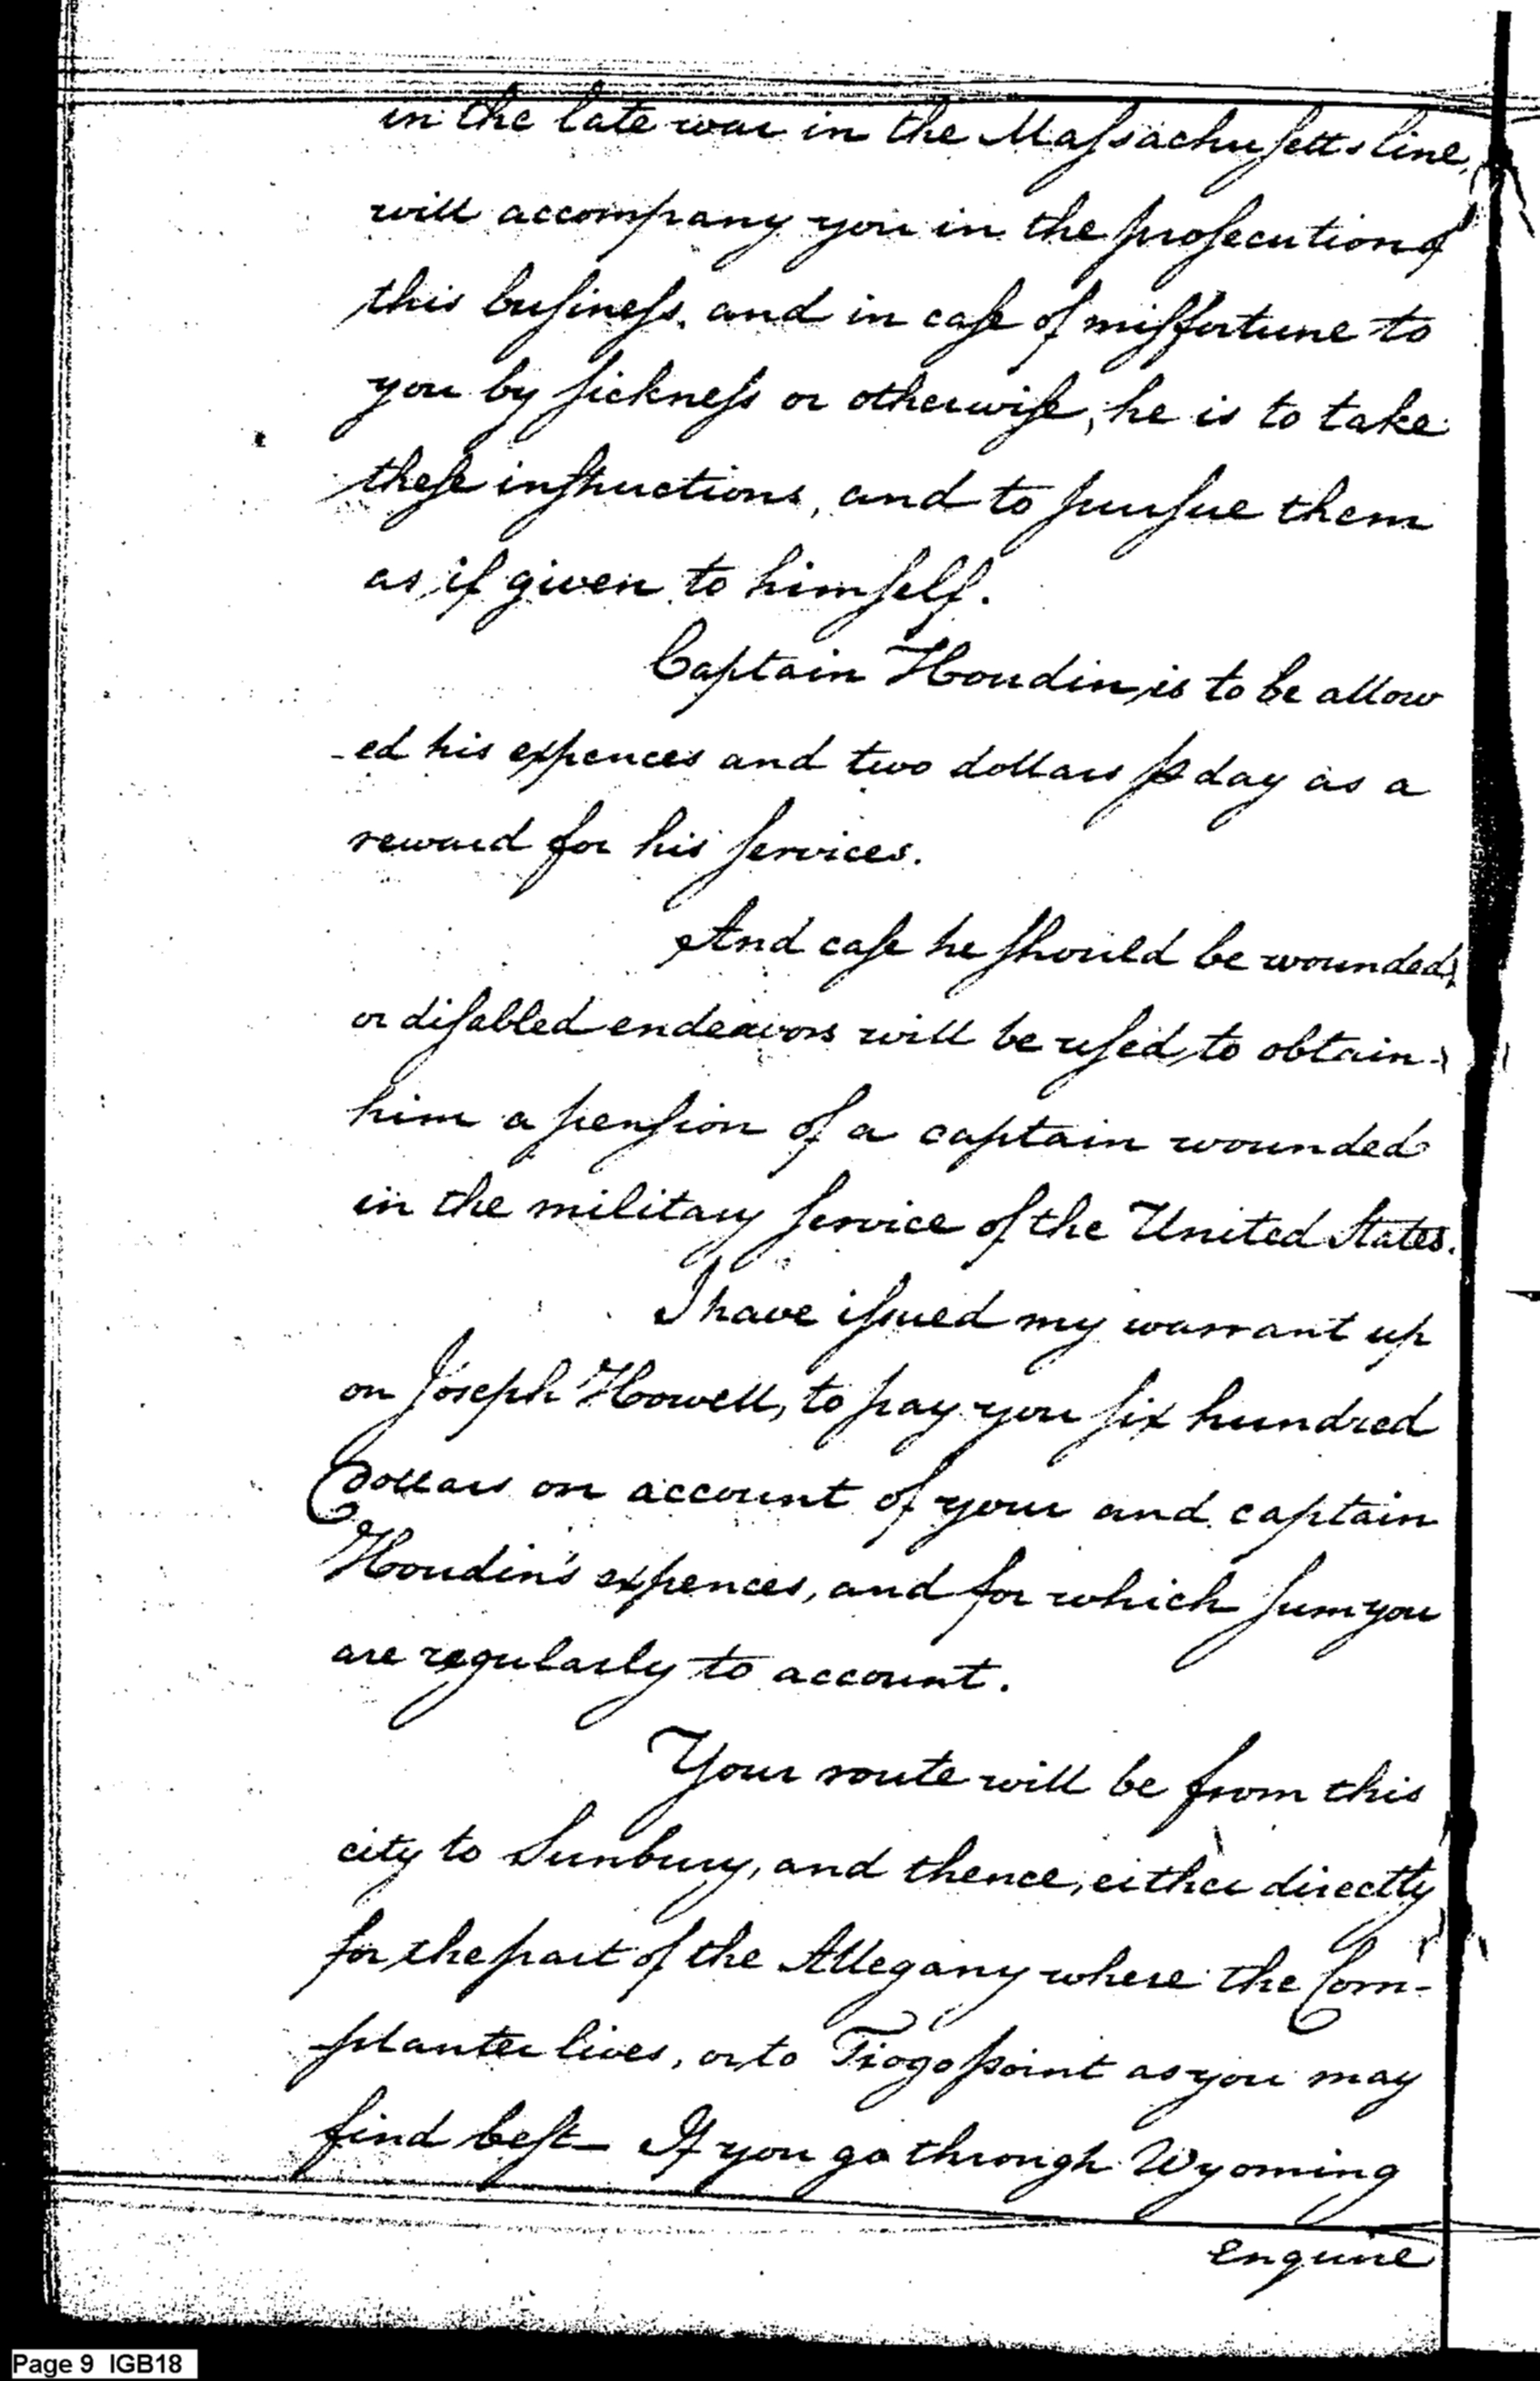 in the late war in the Massachusetts line,
will accompany you in the prosecution of
this business, and in case of misfortune to
you by sickness or otherwise, he is to take
these instructions, and to pursue them
as if given to himself.
Captain Houdin is to be allow
-ed his expences and two dollars ⅌ day as a
reward for his services.
And case he should be wounded,
or disabled endeavors will be used, to obtain
him a pension of a captain wounded
in the military service of the United States.
I have issued my warrant up
on Joseph Howell, to pay you six hundred
Dollars on account of your and captain
Houdin's expences, and for which sum you
are regularly to account.
Your route will be from this
city to Sunbury, and thence, either directly
for the part of the Allegany where the Corn-
-planter lives, or to Tiogo point as you may
find best— If you go through Wyoming
enquire
Page 9 IGB18